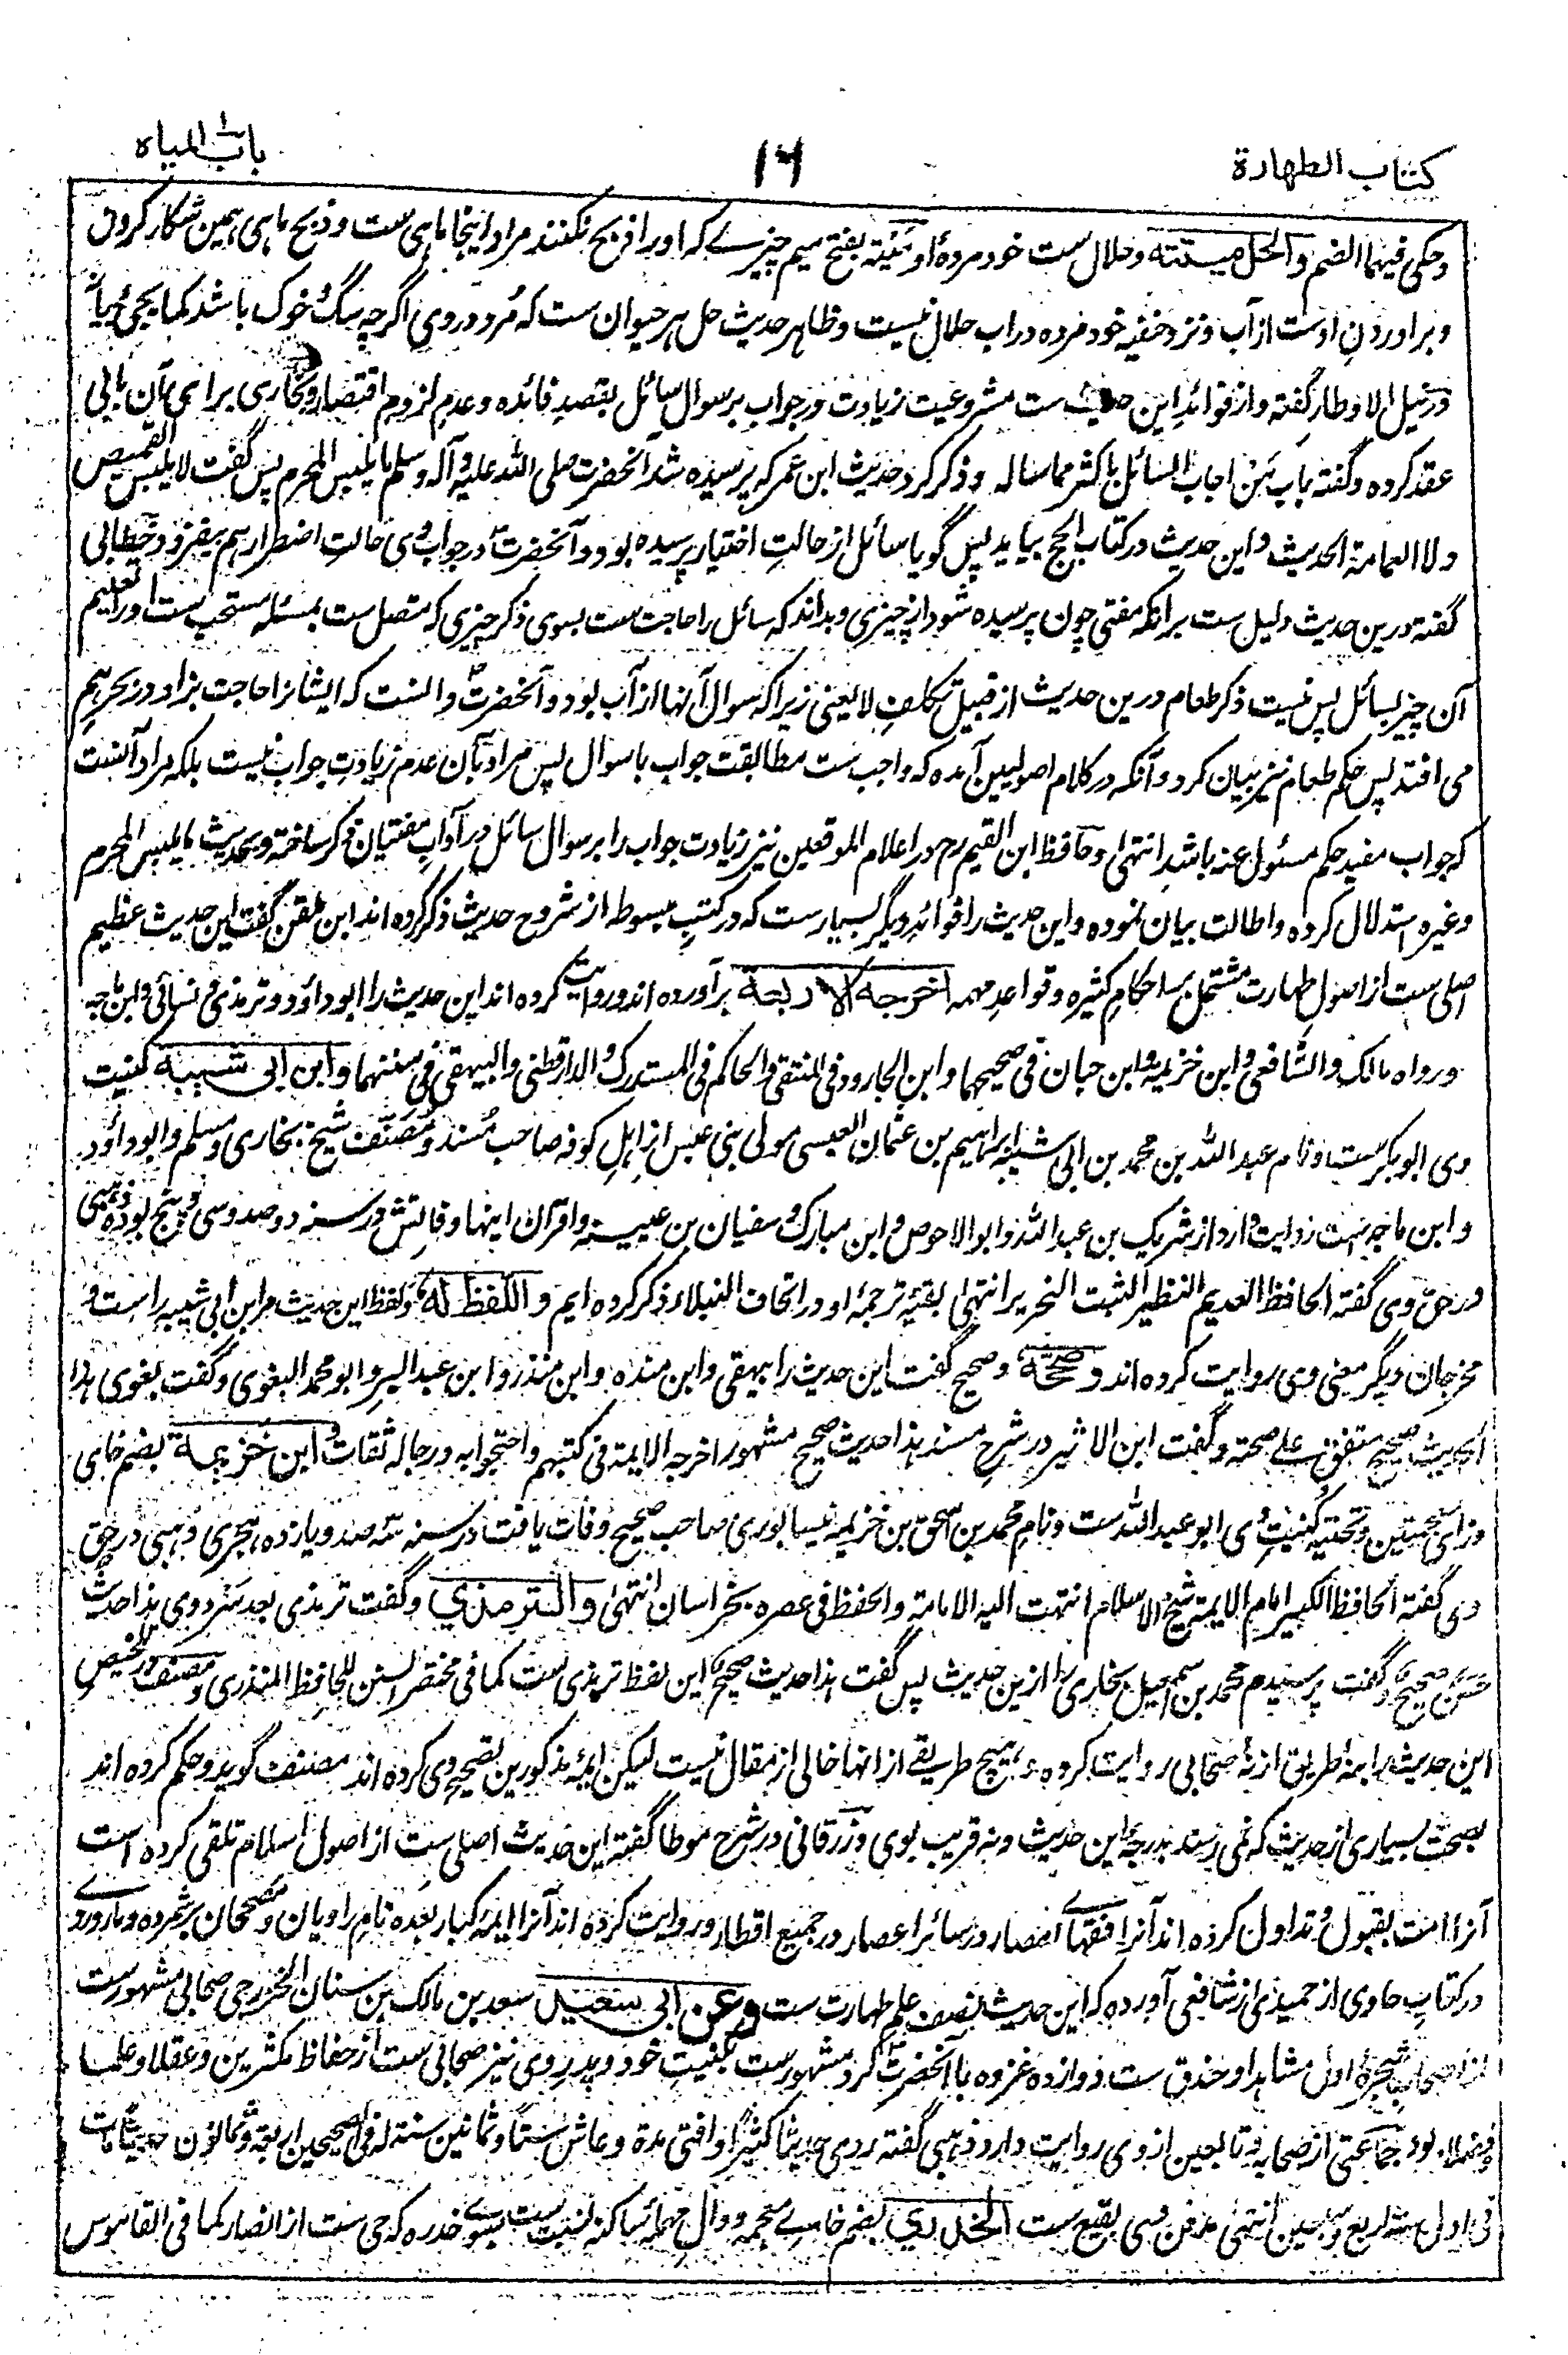 کتاب الطهارة
۱۶
باب المیاه
وحکی فیهما الضم والحل میتته وحلال ست خود مردهٔ او مَیْتة بفتح میم چیزے که او را ذبح نکنند مراد اینجا ماهی ست و ذبح ماهی همین شکار کردن
و برآوردن اوست از آب و نزد حنفیه خود مرده در آب حلال نیست و ظاهر حدیث حل هر حیوان ست که مُرد در وی اگرچه سگ و خوک باشد کما یجیٔ بیانه
در نیل الاوطار گفته و از فوائد این حدیث ست مشروعیت زیادت در جواب بر سوال سائل بقصد فائده و عدم لزوم اقتصار و بخاری برای آن بابی
عقد کرده و گفته باب مَن اجاب السائل باکثر مما ساله و ذکر کرد حدیث ابن عمر که پرسیده شد آنحضرت صلی الله علیه وآله وسلم ما یلبس المحرم پس گفت لا یلبس القمیص
ولا العمامة الحدیث و این حدیث در کتاب الحج بیاید پس گویا سائل از حالتِ اختیار پرسیده بود و آنحضرت در جواب وی حالتِ اضطرار هم بیفزود خطابی
گفته درین حدیث دلیل ست بر آنکه مفتی چون پرسیده شود از چیزی و بداند که سائل را حاجت ست بسوی ذکر چیزی که متصل ست بمسئله مستحب ست او را تعلیم
آن چیز بسائل پس نیست ذکر طعام درین حدیث از قبیل تکلفِ لایعنی زیرا که سوال آنها از آب بود و آنحضرت دانست که ایشانرا حاجت بزاد در بحر هم
می افتد پس حکم طعام نیز بیان کرد و آنکه در کلام اصولیین آمده که واجب ست مطابقت جواب با سوال پس مراد بآن عدم زیادتِ جواب نیست بلکه مراد آنست
که جواب مفید حکم مسئول عنه باشد انتهی و حافظ ابن القیم رح در اعلام الموقعین نیز زیادت جواب را بر سوال سائل در آداب مفتیان ذکر ساخته و بحدیث ما یلبس المحرم
وغیره استدلال کرده و اطالت بیان نموده و این حدیث را فوائد دیگر بسیار ست که در کتبِ مبسوطه از شروح حدیث ذکر کرده اند ابن ملقن گفت این حدیث عظیم
اصلی ست از اصول طهارت مشتمل بر احکام کثیره و قواعدِ مهمه اخرجه الاربعة برآورده اند و روایت کرده اند این حدیث را ابوداؤد و ترمذی و نسائی و ابن ماجه
ورواه مالک والشافعی و ابن خزیمه و ابن حبان فی صحیحهما و ابن الجارود فی المنتقی والحاکم فی المستدرک والدارقطنی والبیهقی فی سننهما وابن ابی شیبه کنیت
وی ابوبکر ست و نام عبد الله بن محمد بن ابی شیبه ابراهیم بن عثمان العبسی مولی بنی عبس از اهل کوفه صاحب مُسند و مُصَنَّف شیخ بخاری و مسلم و ابوداؤد
و ابن ماجه ست روایت دارد از شریک بن عبد الله و ابو الاحوص و ابن مبارک و سفیان بن عیینه و اقران اینها وفاتش در سنه دو صد و سی و پنج بوده ذهبی
در حق وی گفته الحافظ العدیم النظیر الثبت النحریر انتهی بقیهٔ ترجمهٔ او در اتحاف النبلاء ذکر کرده ایم و اللفظ له و لفظ این حدیث مر ابن ابی شیبه راست و
مخرجان دیگر معنی وی روایت کرده اند و صحّحه و صحیح گفت این حدیث را بیهقی و ابن منده و ابن منذر و ابن عبد البر و ابو محمد البغوی و گفت بغوی هذا
الحدیث صحیح متفق علی صحته و گفت ابن الاثیر در شرح مسند هذا حدیث صحیح مشهور اخرجه الایمة فی کتبهم واحتجوا به ورجاله ثقات و ابن خزیمة بضم خای
وزای معجمتین و تحتیه کنیتِ وی ابو عبد الله ست و نام محمد بن اسحق بن خزیمه نیسابوری صاحب صحیح وفات یافت در سنه سه صد و یازده هجری ذهبی در حق
وی گفته الحافظ الکبیر امام الایمة شیخ الاسلام انتهت الیه الامامة والحفظ فی عصره بخراسان انتهی والترمذي و گفت ترمذی بعد سرد وی هذا حدیث
حسن صحیح و گفت پرسیدم محمد بن اسمعیل بخاری را ازین حدیث پس گفت هذا حدیث صحیح این لفظ ترمذی ست کما فی مختصر السنن للحافظ المنذری و مصنف در تلخیص
این حدیث را بنه طریق از نه صحابی روایت کرده و هیچ طریقے از انها خالی از مقال نیست لیکن ایمهٔ مذکورین تصحیح وی کرده اند مصنف گوید و حکم کرده اند
بصحت بسیاری از حدیث که نمی رسند بدرجهٔ این حدیث و نه قریب بوی و زرقانی در شرح موطا گفته این حدیث اصلی ست از اصول اسلام تلقی کرده است
آنرا امت بقبول و تداول کرده اند آنرا فقهاے امصار در سائر اعصار در جمیع اقطار و روایت کرده اند آنرا ایمه کبار بعده نامِ راویان و مصححان برشمرده و ماوردے
در کتابِ حاوی از حمیدی از شافعی آورده که این حدیث نصف علم طهارت ست وعن ابی سعید سعد بن مالک بن سنان الخزرجی صحابی مشهور ست
از اصحاب شجرهٔ اول مشاهد او خندق ست دوازده غزوه با آنحضرت کرد مشهور ست بکنیتِ خود و پدرِ وی نیز صحابی ست از حفاظ مکثرین و عقلا و علما
و فضلاء بود جماعتی از صحابه و تابعین از وی روایت دارد ذهبی گفته روی حدیثا کثیرا و افتی مدة و عاش ستا و ثمانین سنة له فی الصحیحین اربعة و ثمانون حدیثا مات
فی اول سنة اربع و سبعین انتهی مدفن وی بقیع ست الخدري بضم خاے معجمه و دال مهمله ساکنه نسبت ست بسوے خدره که حی ست از انصار کما فی القاموس